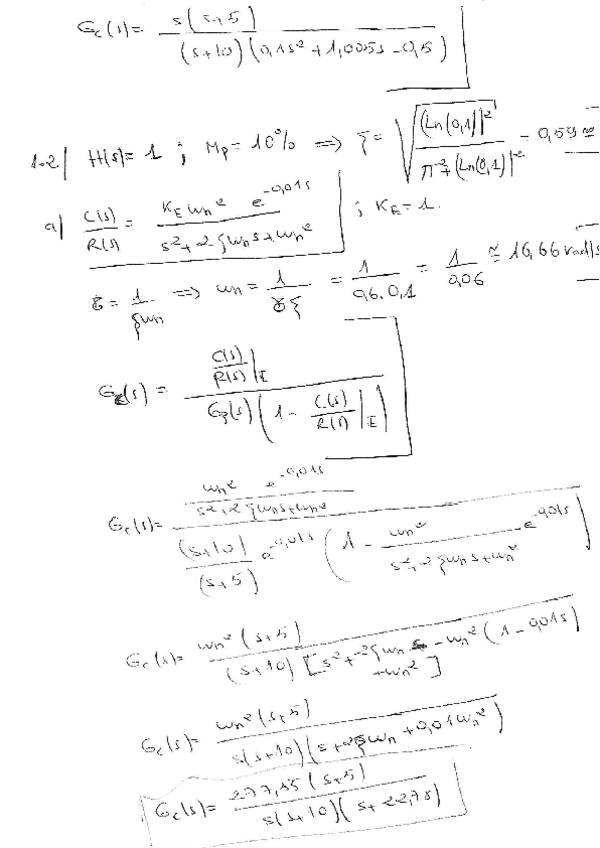 Gc(s) = s(s+5) / (s+10)(0,1s² + 1,005s - 0,5)
1.2| H(s) = 1 ; Mp = 10% => ξ = √( (Ln(0,1))² / π² + (Ln(0,1))² ) = 0,59 ≈
a| C(s)/R(s) = K_E ωn² e^(-0,01s) / s² + 2ξωns + ωn² ; K_E = 1.
τ = 1/ξωn => ωn = 1/τξ = 1/0,6·0,1 = 1/0,06 ≅ 16,66 rad/s
Gc(s) = C(s)/R(s)|I / Gp(s)(1 - C(s)/R(s)|I)
Gc(s) = ωn² e^(-0,01s) / s² + 2ξωns + ωn² / (s+10)/(s+5) e^(-0,01s) (1 - ωn² / s² + 2ξωns + ωn² e^(-0,01s))
Gc(s) = ωn²(s+5) / (s+10)[s² + 2ξωn s - ωn²(1 - 0,01s) + ωn²]
Gc(s) = ωn²(s+5) / s(s+10)(s + 2ξωn + 0,01ωn²)
Gc(s) = 277,55(s+5) / s(s+10)(s + 22,78)